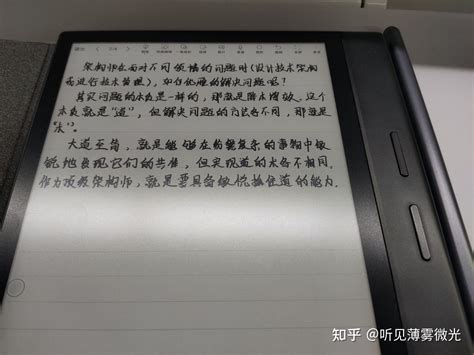 架构师在面对不同领域的问题时(设计技术架构
或进行技术管理),如何优雅的解决问题呢?
其实问题的本质是一样的,那就是降本增效、这个
本质就是"道",但解决问题的方法各不同,那就是
"术"。
大道至简,就是能够在纷繁复杂的事物中敏
锐地发现它们的共性,但实现道的术各不相同。
作为顶级架构师,就是要具备敏锐抓住道的能力.
知乎 @听见薄雾微光